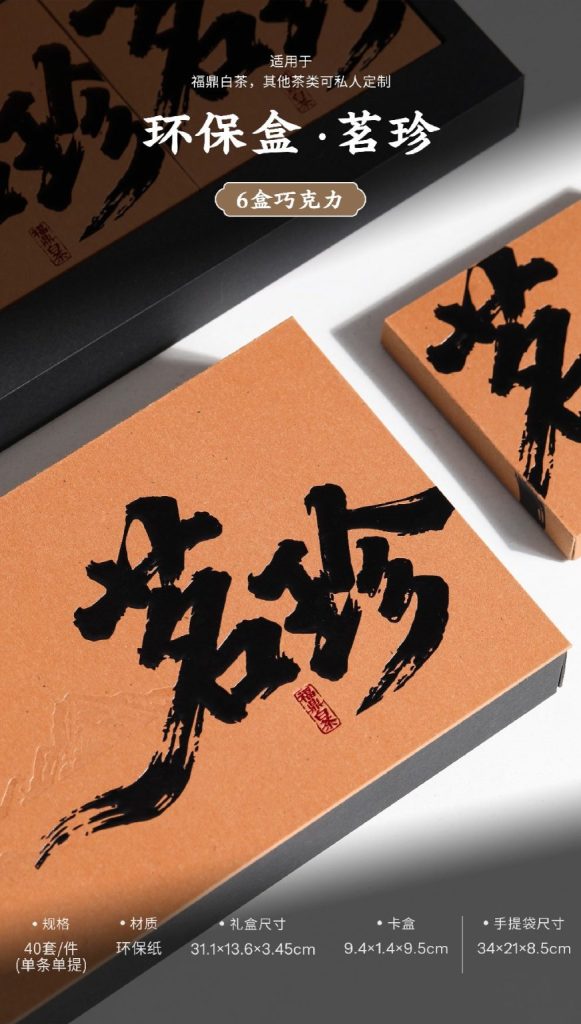 适用于
福鼎白茶，其他茶类可私人定制
环保盒·茗珍
6盒巧克力
珍
福鼎白茶
茗
茗珍
福鼎白茶
• 规格
40套/件
(单条单提)
• 材质
环保纸
• 礼盒尺寸
31.1×13.6×3.45cm
• 卡盒
9.4×1.4×9.5cm
• 手提袋尺寸
34×21×8.5cm